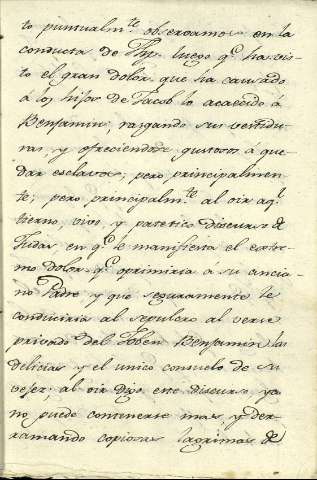 to puntualm.te observamos en la
conducta de Jph. luego q.e ha vis-
to el gran dolor que ha causado
á los hijos de Jacob lo acaecido á
Benjamin, rasgando sus vestidu-
ras y ofreciendose gustosos á que-
dar esclavos; pero principalmen-
te; pero principalm.te al oir aq.l
tierno, vivo, y patetico discurso de
Judas en q.e le manifiesta el extre-
mo dolor q.e oprimiria a su ancia-
no Padre y que seguramente le
conduciria al sepulcro al verse
privado del Joben Benjamin las
delicias y el unico consuelo de su
vejez; al oir digo, este discurso ya
no puede contenerse mas, y der-
ramando copiosas lagrimas de